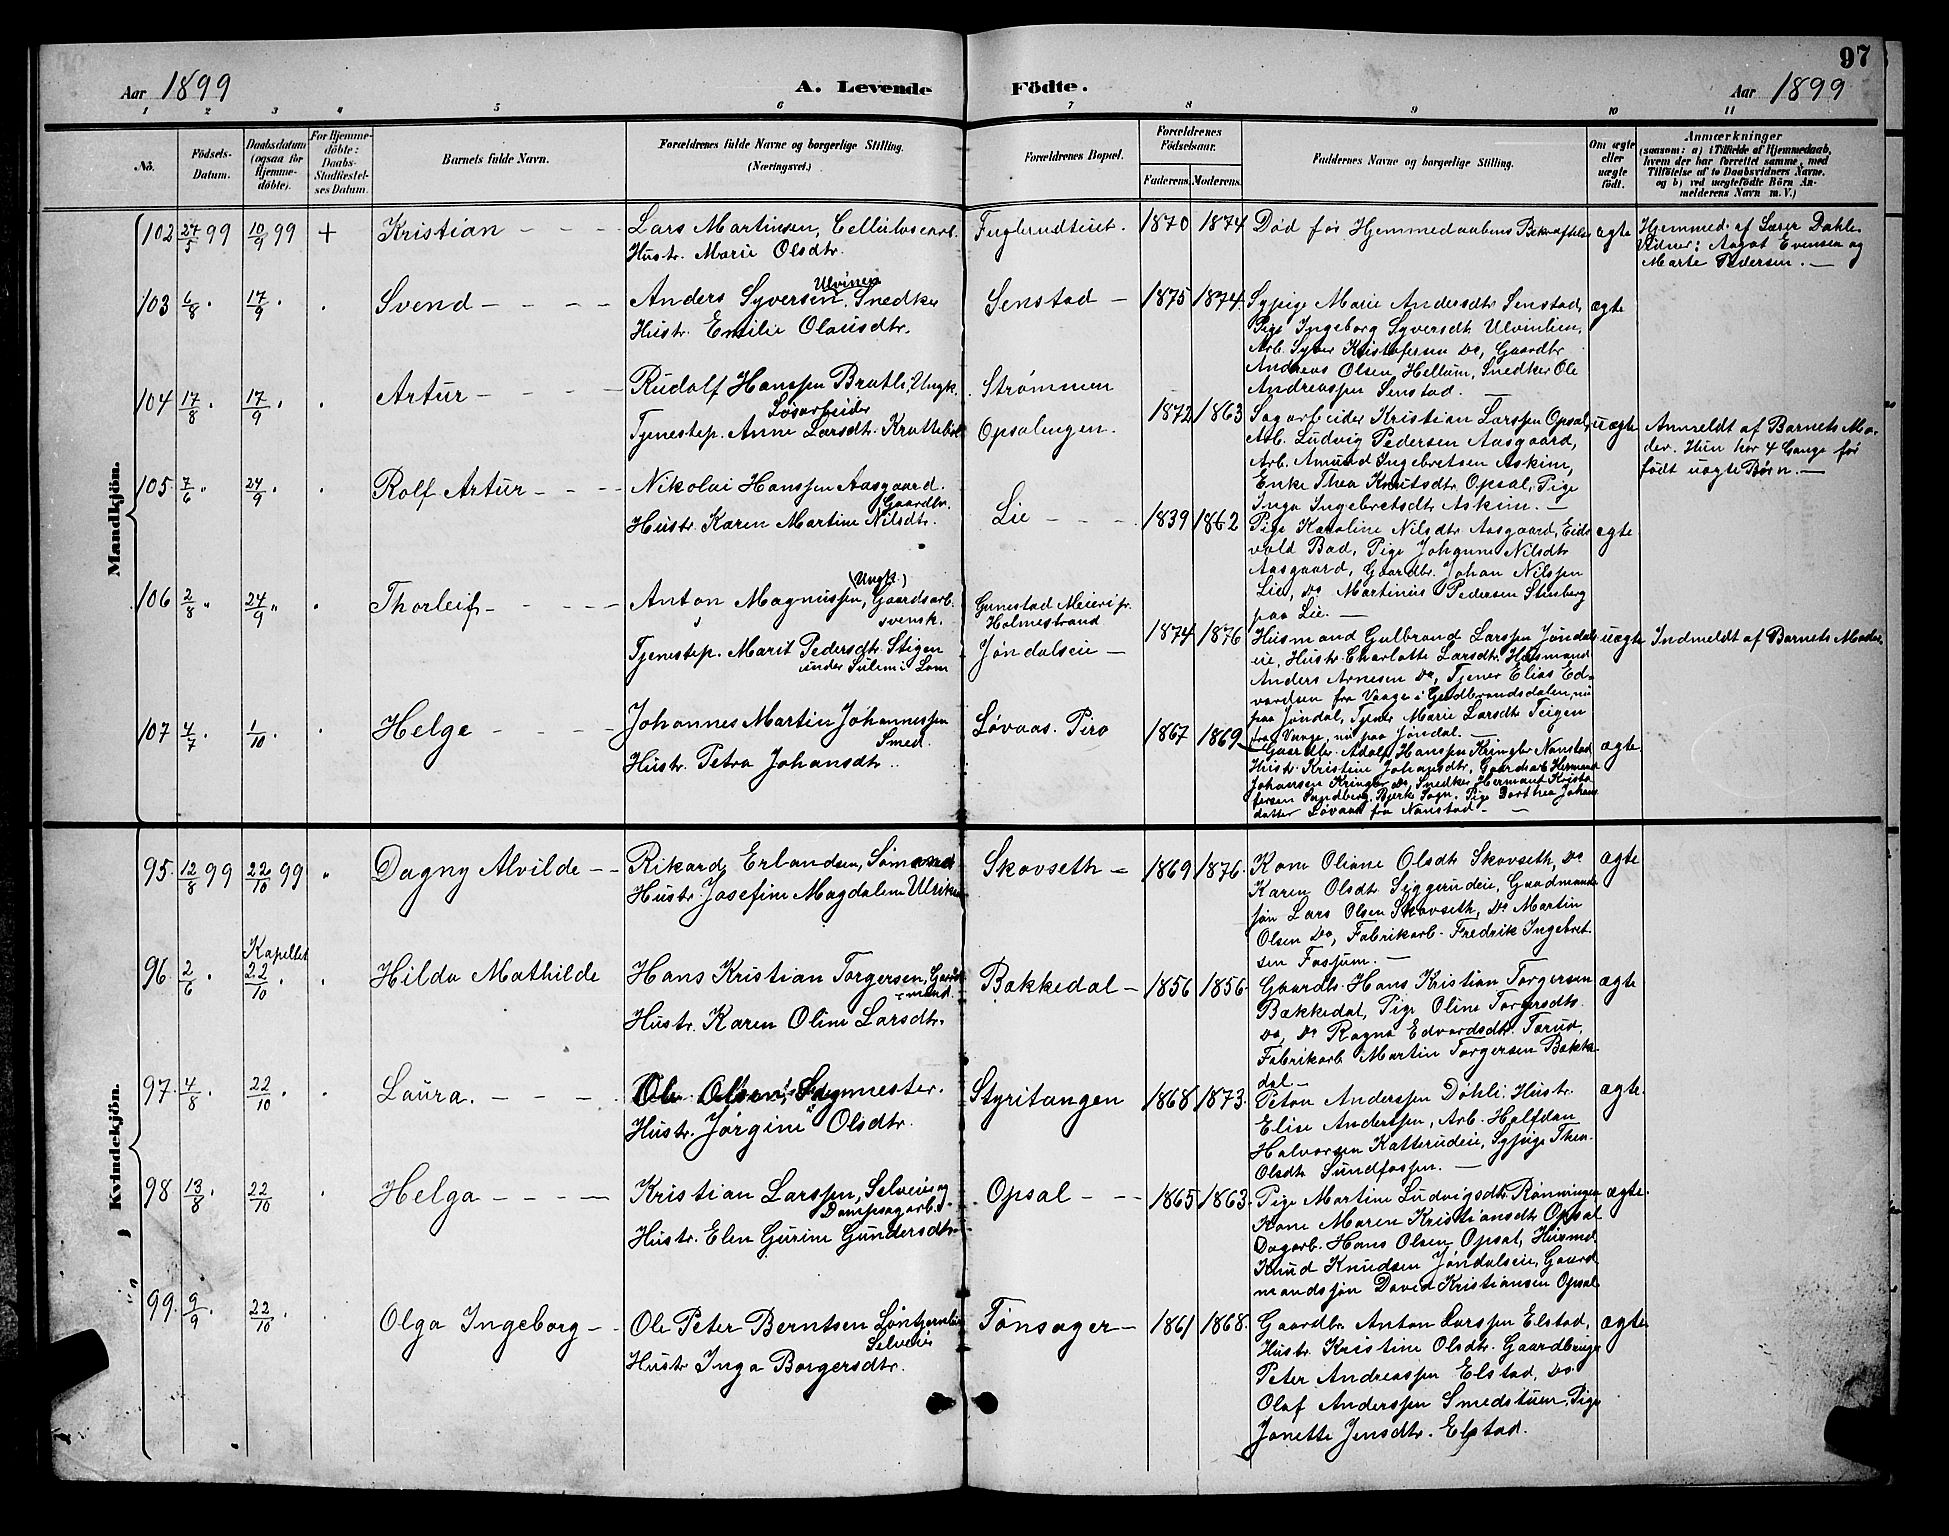 97
Aar 1899 A. Levende Födte. Aar 1899
1 2 3 4 5 6 7 8 9 10 11
No.
Födsels-Datum.
Daabsdatum (ogsaa for Hjemme-döbte).
For Hjemme-döbte: Daabs-Stadfæstelses Datum.
Barnets fulde Navn.
Forældrenes fulde Navne og borgerlige Stilling. (Næringsvei.)
Forældrenes Bopæl.
Forældrenes Födselsaar.
Faderens. Moderens.
Faddernes Navne og borgerlige Stilling.
Om ægte eller uægte født.
Anmærkninger
(saasom: a) i Tilfælde af Hjemmedaab, hvem der har forrettet samme, med Tilföielse af to Daabsvidners Navne. og b) ved uægtefödte Börn Anmelderens Navn m. V.)
Mandkjön.
102 27/5 99 10/9 99 + Kristian
Lars Martinsen, Cellulosearb.
Hustr. Marie Olsdtr.
1870 1874 Død før Hjemmedaabens Bekræftelse ægte
Hjemmed. af Lærer Dahle
Vidner: Aagot Evensen og
Marte Pedersen.
103 6/8 17/9 Svend
Ulvinen
Anders Syversen, Snedker
Hustr. Emilie Olausdtr.
Senstad 1875 1874
Sypige Marie Andersdtr Senstad, ægte
Pige Ingeborg Syversdt Ulvinlien,
Arb. Syver Kristofersen Do, Gaardbr
Andreas Olsen Hellum, Snedker Ole
Andreassen Senstad.
104 17/8 17/9 Artur
Rudolf Hanssen Bratli, Ungk.
Løsarbeider
Tjenestep. Anne Larsdtr.
Strømmen
Opsalengen.
1872 1863
Sagarbeider Kristian Larssen Opsal, uægte
Arb. Ludvig Pedersen Aasgaard,
Arb. Amund Ingebretsen Askim,
Enke Thea Knutsdtr Opsal, Pige
Inga Ingebretsdtr Askim.
Anmeldt af Barnets Mo-
der. Hun har 4 Gange før
født uægte Børn.
105 7/6 24/9 Rolf Artur
Nikolai Hanssen Aasgaard.
Gaardbr.
Hustr. Karen Martine Nilsdtr.
Lie 1839 1862
Pige Karoline Nilsdtr Aasgaard, Eids ægte
vold Bad, Pige Johanne Nilsdtr
Aasgaard, Gaardbr. Johan Nilssen
Lie, Do Martinus Pedersen Stensberg
paa Lie.
106 2/8 24/9 Thorleif
(Ungk.)
Anton Magnussen, Gaardsarb.
svensk.
Tjenestep. Marit Pedersdtr. Stigen
under Sulem i Lom
Gunestad Meieri pr.
Holmestrand
Jøndalseie
1874 1876
Husmand Gulbrand Larssen Jøndals uægte
eie, Hustr. Charlotte Larsdtr, Husmand
Anders Arnesen Do, Tjener Elias Ed-
vardsen fra Vaage i Gudbrandsdalen, nu
paa Jøndal, Tjener Marie Larsdtr Teigen
fra Vaage, nu paa Jøndal.
Indmeldt af Barnets Moder.
107 4/7 1/10 Helge
Johannes Martin Johannessen
Smed.
Hustr. Petra Johansdtr.
Løvaas. Piro 1867 1869
Gaardbr. Adolf Hanssen Kringler Nanstad ægte
Hustr. Kristine Johansdtr, Gaardsarb Herman
Johansen Kringler Do, Snedker Hermant Kristo
fersen Sundberg, Bjerke Sogn. Pige Dorthea Johans
datter Løvaas fra Nanstad
Kvindekjön.
95 12/8 99 22/10 99 Dagny Alvilde
Rikard Erlandsen, Sømand
Hustr. Josefine Magdalene Ulrikke
Skovseth 1869 1876
Kone Oliane Olsdt Skovseth, Do ægte
Karen Olsdt Siggerudeie, Gaadmands
søn Lars Olsen Skovseth, Do Martin
Olsen Do, Fabrikarb. Fredrik Ingebret
sen Fossum.
Kapellet
96. 2/6 22/10 Hilda Mathilde
Hans Kristian Torgersen, Gaard-
mand.
Hustr. Karen Oline Larsdtr.
Bakkedal 1856 1856
Gaardbr. Hans Kristian Torgersen ægte
Bækkedal, Pige Oline Torgersdtr.
Do, Do Ragna Edvardsdtr. Torud,
Fabrikarb. Martin Torgersen Bakke
dal
97. 4/8 22/10 Laura.
Ole Olsen, Sagmester.
Hustr. Jørgine Olsdtr.
Styritangen 1868 1873.
Peton Anderssen Døhli. Hustr. ægte.
Elise Anderssen, Arb. Halfdan
Halvorsen Katterudeie, Sypige Thea
Olsdt Sundfossen.
98 13/8 22/10 Helga
Kristian Larssen, Selveier og
Dampsagarb.
Hustr. Elen Gurine Gundersdtr.
Opsal 1865 1863.
Pige Martine Ludvigsdtr. Rønningen ægte.
Kone Maren Kristiansdtr Opsal
Dagarb. Hans Olsen Opsal, Husmd
Knud Knudsen Jøndalseie, Gaard
mandssøn David Kristiansen Opsal
99. 9/9 22/10 Olga Ingeborg
Ole Peter Berntsen
Selveier
Hustr Inga Borgersdtr.
Tønsager 1861 1868.
Gaardbr Anton Larssen Elstad, ægte
Hustr. Kristine Olsdtr. Gaardbruger
Peter Andreassen Elstad, Do
Olaf Anderssen Smedstuen, Pige
Jonette Jensdtr. Elstad.